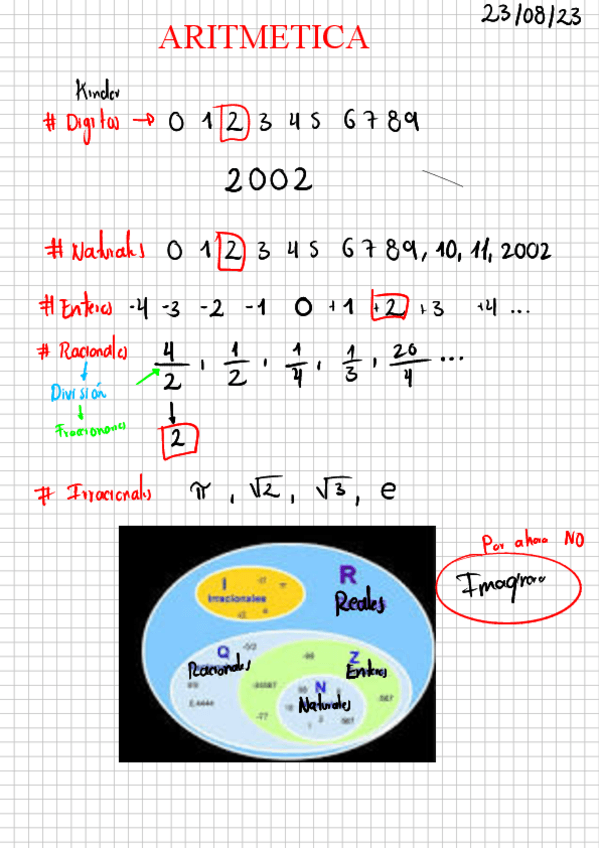 23/08/23
ARITMETICA
Kinder
# Digitos → 0 1 2 3 4 5 6 7 8 9
2002
# Naturales 0 1 2 3 4 5 6 7 8 9, 10, 11, 2002
# Enteros -4 -3 -2 -1 0 +1 +2 +3 +4 ...
# Racionales 4/2, 1/2, 1/4, 1/3, 20/4 ...
División
Fraccionarios
2
# Irracionales π, √2, √3, e
Por ahora NO
I
R
Irracionales
Reales
Q
Z
Racionales
Enteros
N
Naturales